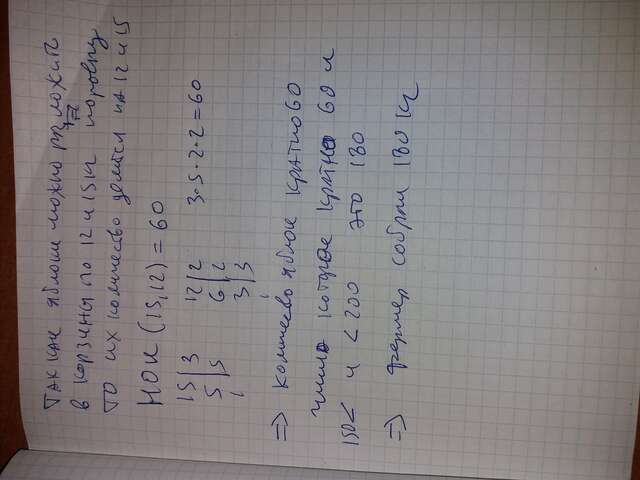 Так как яблоки можно разложить
в корзины по 12 и 15 кг поровну
то их количество делится на 12 и 15
НОК (15,12) = 60
15|3 12|2 3·5·2·2=60
5|5 6|2
1 3|3
1
=> количество яблок кратно 60
число которое кратно 60 и
150< и <200 это 180
=> фермер собрал 180 кг